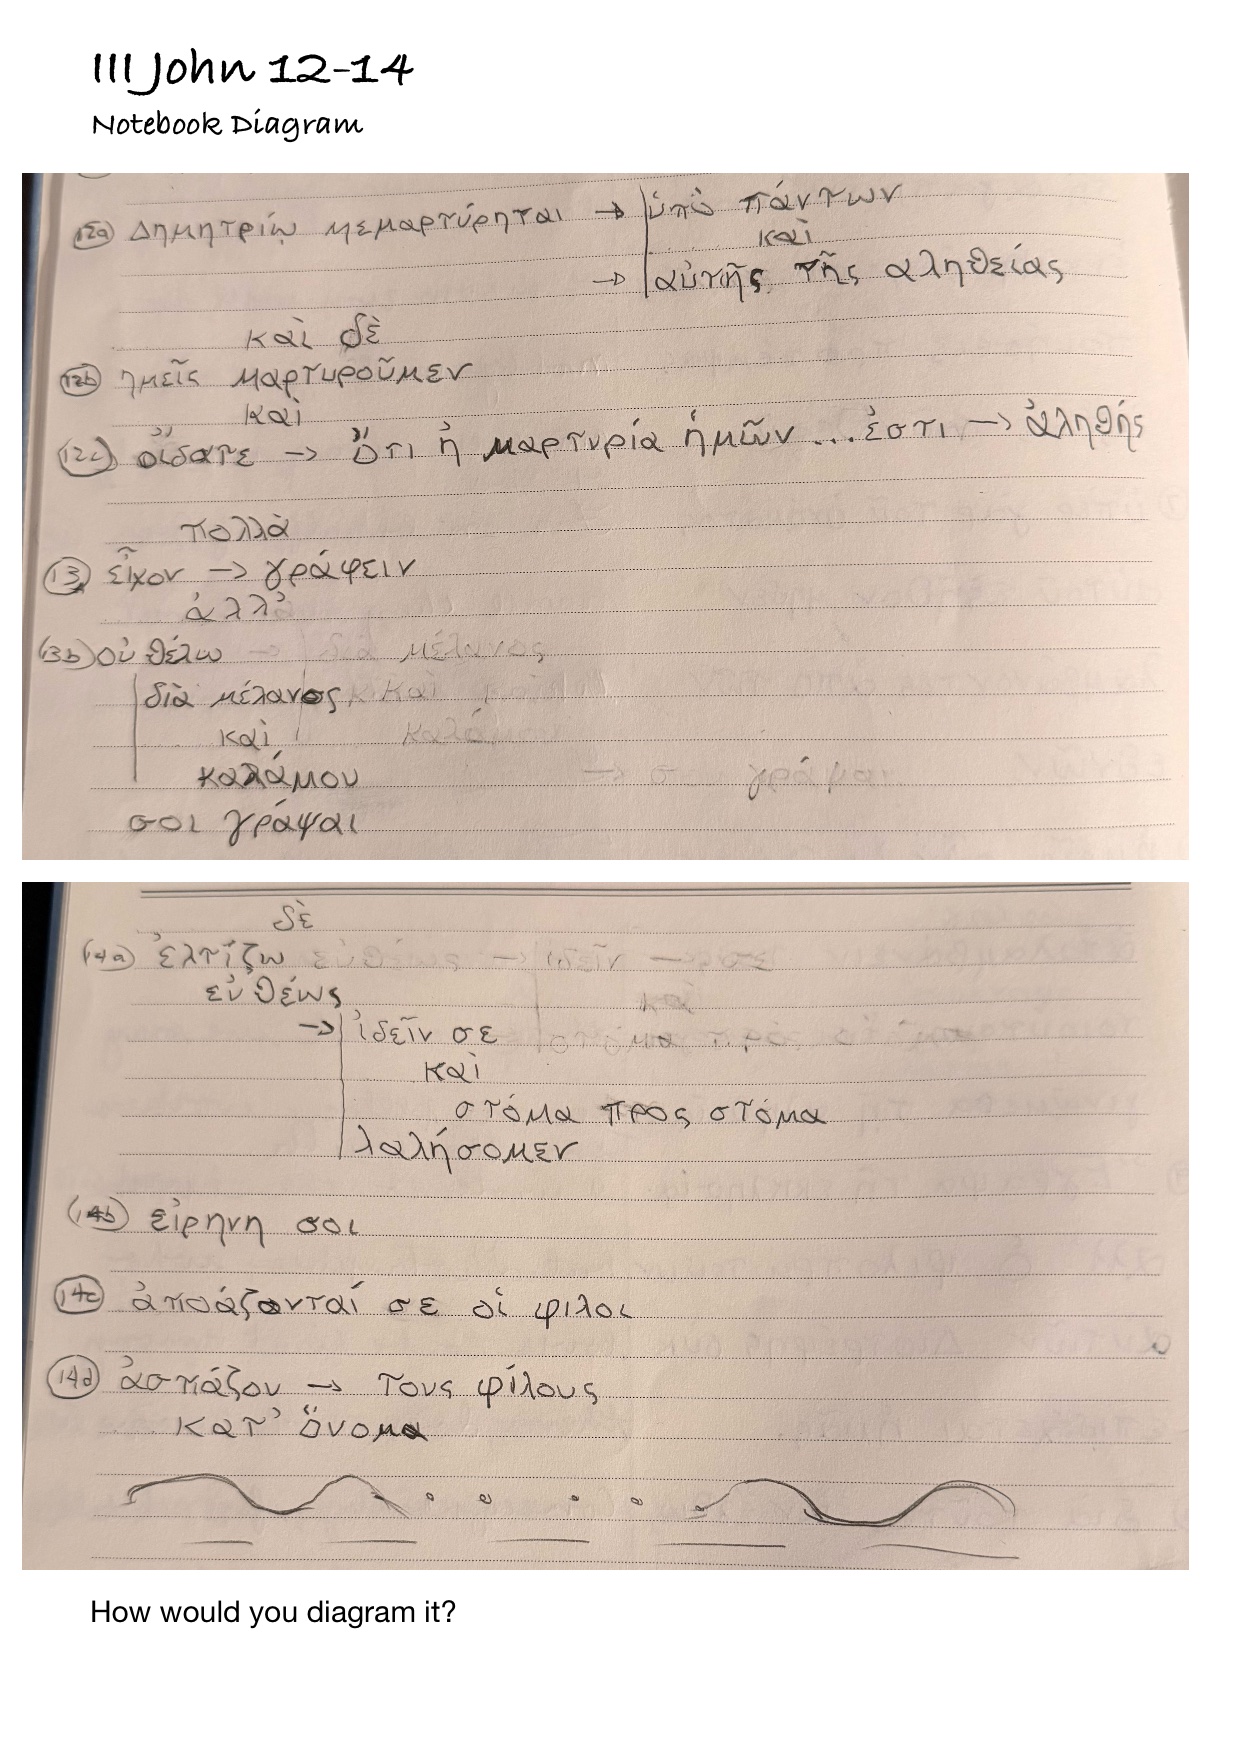 III John 12-14
Notebook Diagram
12a Δημητρίῳ μεμαρτύρηται → ὑπὸ πάντων
καὶ
→ αὐτῆς τῆς αληθείας
καὶ δὲ
12b ημεῖς μαρτυροῦμεν
καὶ
12c οἴδατε → ὅτι ἡ μαρτυρία ἡμῶν ... ἐστι → ἀληθής
πολλὰ
13 εἶχον → γράφειν
ἀλλ'
13b οὐ θέλω
διὰ μέλανος
καὶ
καλάμου
σοι γράψαι
δὲ
14a ἐλπίζω
εὐθέως
→ ἰδεῖν σε
καὶ
στόμα προς στόμα
λαλήσομεν
14b εἰρηνη σοι
14c ἀπσάζονταί σε οἱ φιλοι
14d ἀσπάζου → τους φίλους
κατ' ὄνομα
How would you diagram it?